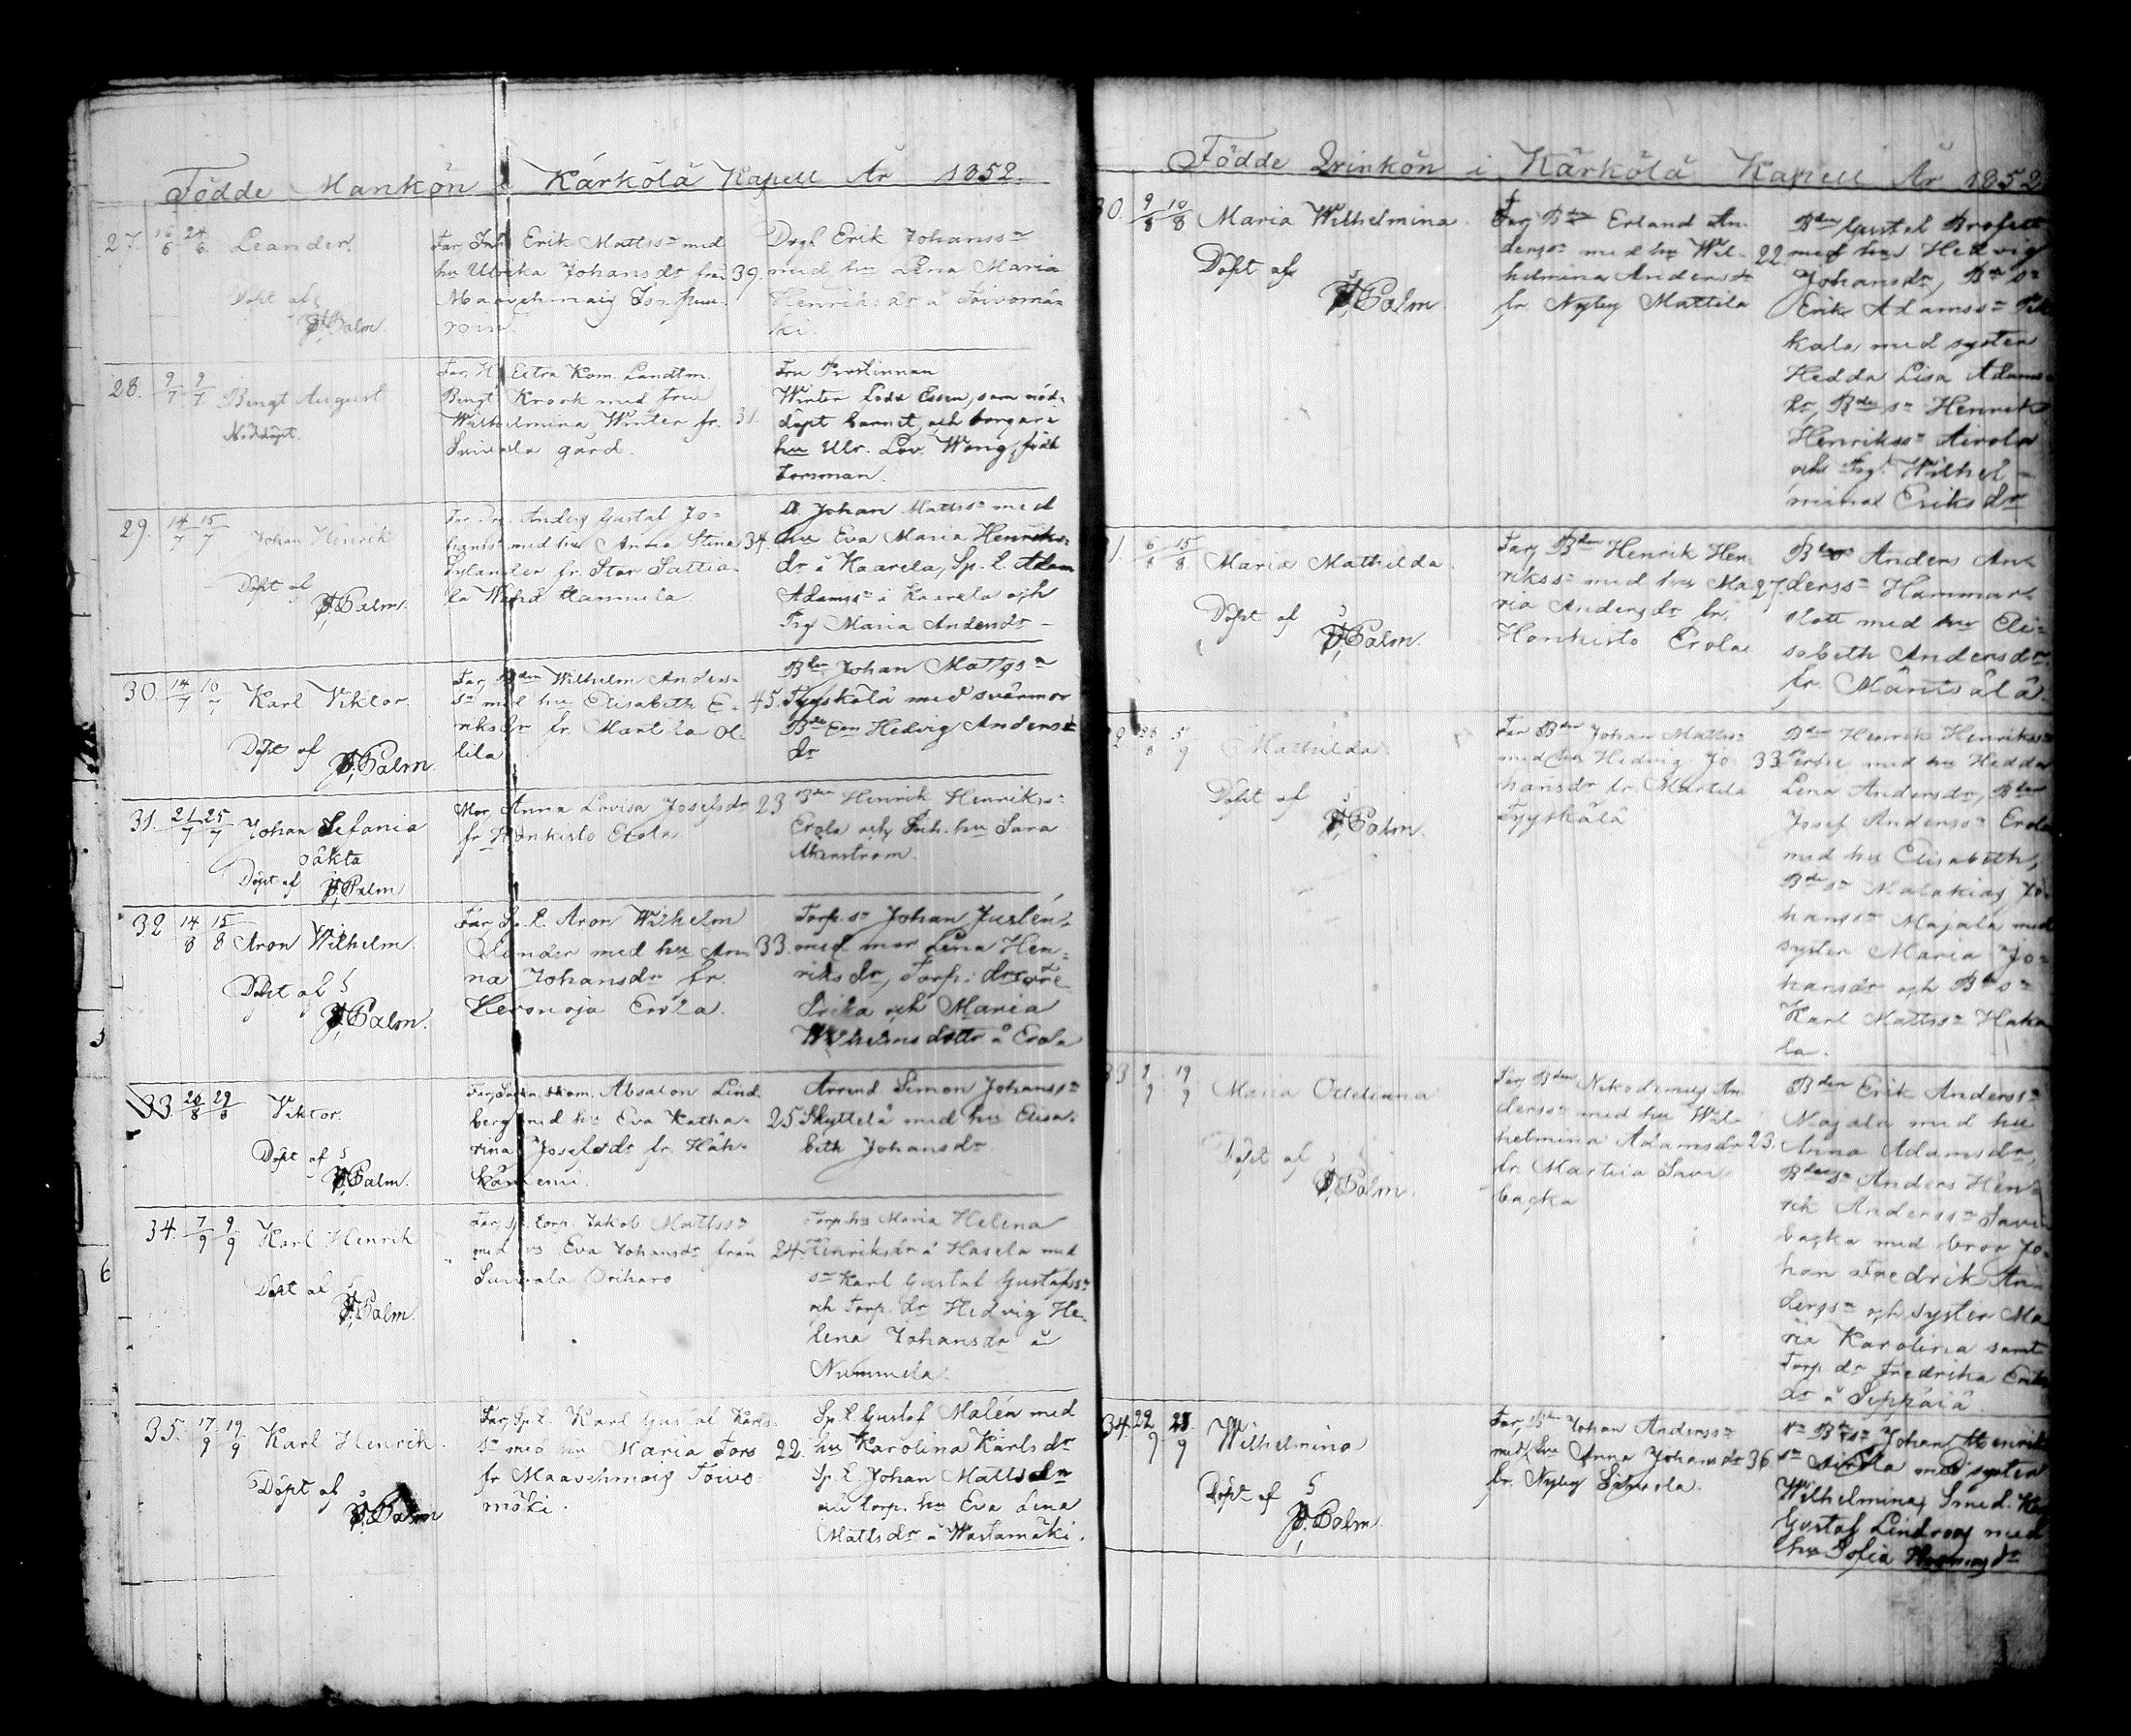 Födde Mankön i Kärkölä Kapell År 1852.
27. 16/6 24/6 Leander.
Döpt af
Palm.
Far, Erik Mattss n med
hu Ulrika Johansdr från 39.
roin.
Drgl Erik Johanss n
med hu Lena Maria
Henriksdr å Toivomä-
ki.
28. 9/7 9/7 Bengt August
Nöddöpt.
Far, H Extra Kom. Landtm.
Bengt Krook med fru
Wilhelmina Winter fr. 31.
gård.
Fru Prostinnan
Winter född Essen, som nöd-
döpt barnet, och borgar
hu Ulr. Lov. Wong, född
Forsman.
29. 14/7 15/7 Johan Henrik
Döpt af
Palm.
Far, Anders Gustaf Jo-
hanss n med hu Anna Stina 34.
Sylander fr. Stor Sattia-
la Hannula
Johan Mattss n med
hu Eva Maria Henriks-
dr å Kaarela, Sp. l. Adam
Adamss n å Kaarela och
Pig. Maria Andersdr
30. 14/7 16/7 Karl Viktor.
Döpt af
Palm.
Far, Bden Wilhelm Anders-
s n med hu Elisabeth E- 45.
riksdr fr. Martila Ol-
lila
Bden Johan Mattss n
Tyyskälä med svärmor
Hedvig Anders-
dr
31. 21/7 25/7 Johan Sefania
oäkta
Döpt af Palm
Mor, Anna Lovisa Josefsdr 23
fr. Honkisto Erola
Bden Henrik Henrikss n
Erola och hu Sara
Åkerström.
32 14/8 15/8 Aron Wilhelm.
Döpt af
Palm.
Far, Sp. l. Aron Wilhelm
Olander med hu An- 33.
na Johansdr fr.
Keronoja Erola.
Torp. s n Johan Juslén
med mor Lena Hen-
riksdr, Torp. dr
Erika och Maria
Wilhelmsdottr å Erola
33. 28/8 29/8 Viktor.
Döpt af
Palm.
Far, Absalon Lind-
berg med hu Eva Katha- 25
rina Josefsdr fr. Häh-
käniemi.
Arrend. Simon Johanss n
Skyttelä med hu Elisa-
beth Johansdr
34. 7/9 9/9 Karl Henrik
Döpt af
Palm.
Far, Sp. torp. Jakob Mattss n
med hu Eva Johansdr från 24
Oriharo
Torp. hu Maria Helena
Henriksdr å Hasela med
s n Karl Gustaf Gustafss n
och Torp. dr Hedvig He-
lena Johansdr å
Nummela.
35. 17/9 19/9 Karl Henrik.
Döpt af
Palm
Far, Sp. l. Karl Gustaf Karls-
s n med hu Maria Fors 22.
fr Maavehmais Toivo-
mäki.
Sp. l. Gustaf Malén med
hu Karolina Karlsdr
Sp. l. Johan Mattsdn
torp. hu Eva Lena
Mattsdr å Wastamäki.
Födde Qvinkön i Kärkölä Kapell År 1852
30. 9/8 10/8 Maria Wilhelmina.
Döpt af
Palm.
Far, Bden Erland An-
derss n med hu Wil- 22.
helmina Andersdr
fr. Nyby Mattila
Bden Gustaf
med hu Hedvig
Johansdr, Bde s n
Erik Adamss n
kala med syster
Hedda Lisa Adams-
dr, Bde s n Henrik
Henrikss n Airola
och Pig. Wilhel-
mina Eriksdr
31. 6/8 15/8 Maria Mathilda.
Döpt af
Palm.
Far, Bden Henrik Hen-
rikss n med hu Ma- 27.
ria Andersdr fr.
Honkisto Erola
Bden Anders An-
derss n Hammar-
slott med hu Eli-
sabeth Andersdr
fr. Mäntsälä.
32. 28/8 5/9 Mathilda
Döpt af
Palm.
Far Bden Johan Mattss n
med hu Hedvig Jo- 33
hansdr fr. Martila
Tyyskälä
Bden Henrik Henrikss n
med hu Hedda
Lena Andersdr, Bden
Josef Anderss n Erola
med hu Elisabeth,
Bde s n Malakias Jo-
hanss n Majala med
syster Maria Jo-
hansdr och Bde s n
Karl Mattss n Haka-
la.
33 9/9 19/9 Maria
Döpt af
Palm.
Far, Bden Nikodemus An-
derss n med hu Wil-
helmina Adamsdr 23.
fr. Martila Savi-
backa
Bden Erik Anderss n
Majala med hu
Anna Adamsdr,
Bde s n Anders Hen-
rik Anderss n Savi-
backa med bror Jo-
han Fredrik An-
derss n och syster Ma-
ria Karolina samt
Torp. dr Fredrika Eriks-
dr å Seppälä
34. 22/9 28/9 Wilhelmina
Döpt af
Palm.
Far, Bden Johan Anderss n
med hu Anna Johansdr 36.
fr. Nyby
Bde s n Johan Henrik-
s n Airola med syster
Wilhelmina, Smed.
Gustaf Lindroos med
hu Sofia